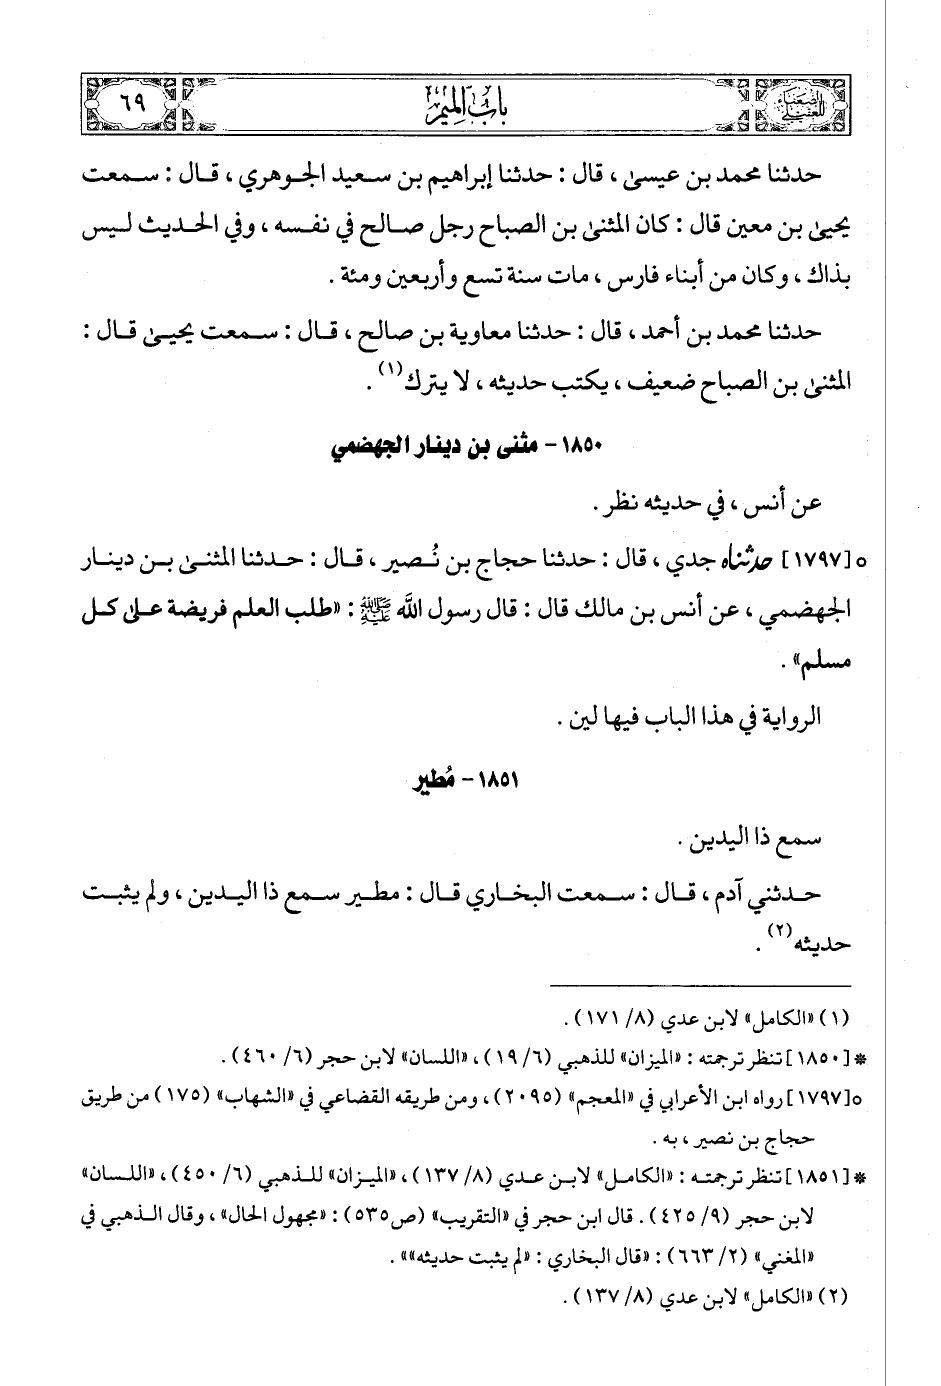 الضعفاء للعقيلي
باب الميم
٦٩
حدثنا محمد بن عيسىٰ ، قال : حدثنا إبراهيم بن سعيد الجوهري ، قال : سمعت
يحيىٰ بن معين قال : كان المثنىٰ بن الصباح رجل صالح في نفسه ، وفي الحديث ليس
بذاك ، وكان من أبناء فارس ، مات سنة تسع وأربعين ومئة .
حدثنا محمد بن أحمد ، قال : حدثنا معاوية بن صالح ، قال : سمعت يحيىٰ قال :
المثنىٰ بن الصباح ضعيف ، يكتب حديثه ، لا يترك(١) .
١٨٥٠- مثنى بن دينار الجهضمي
عن أنس ، في حديثه نظر .
٥[١٧٩٧] حدثناه جدي ، قال : حدثنا حجاج بن نُصير ، قال : حدثنا المثنىٰ بن دينار
الجهضمي ، عن أنس بن مالك قال : قال رسول اللَّه ﷺ : «طلب العلم فريضة علىٰ كل
مسلم» .
الرواية في هذا الباب فيها لين .
١٨٥١- مُطير
سمع ذا اليدين .
حدثني آدم ، قال : سمعت البخاري قال : مطير سمع ذا اليدين ، ولم يثبت
حديثه(٢) .
(١) «الكامل» لابن عدي (٨/ ١٧١) .
* [١٨٥٠] تنظر ترجمته : «الميزان» للذهبي (٦/ ١٩) ، «اللسان» لابن حجر (٦/ ٤٦٠) .
٥[١٧٩٧] رواه ابن الأعرابي في «المعجم» (٢٠٩٥) ، ومن طريقه القضاعي في «الشهاب» (١٧٥) من طريق
حجاج بن نصير ، به .
* [١٨٥١] تنظر ترجمته : «الكامل» لابن عدي (٨/ ١٣٧) ، «الميزان» للذهبي (٦/ ٤٥٠) ، «اللسان»
لابن حجر (٩/ ٤٢٥) . قال ابن حجر في «التقريب» (ص٥٣٥) : «مجهول الحال» ، وقال الذهبي في
«المغني» (٢/ ٦٦٣) : «قال البخاري : «لم يثبت حديثه»» .
(٢) «الكامل» لابن عدي (٨/ ١٣٧) .